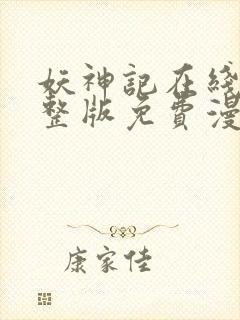 妖神記在綫
整版免費漫
康家佳